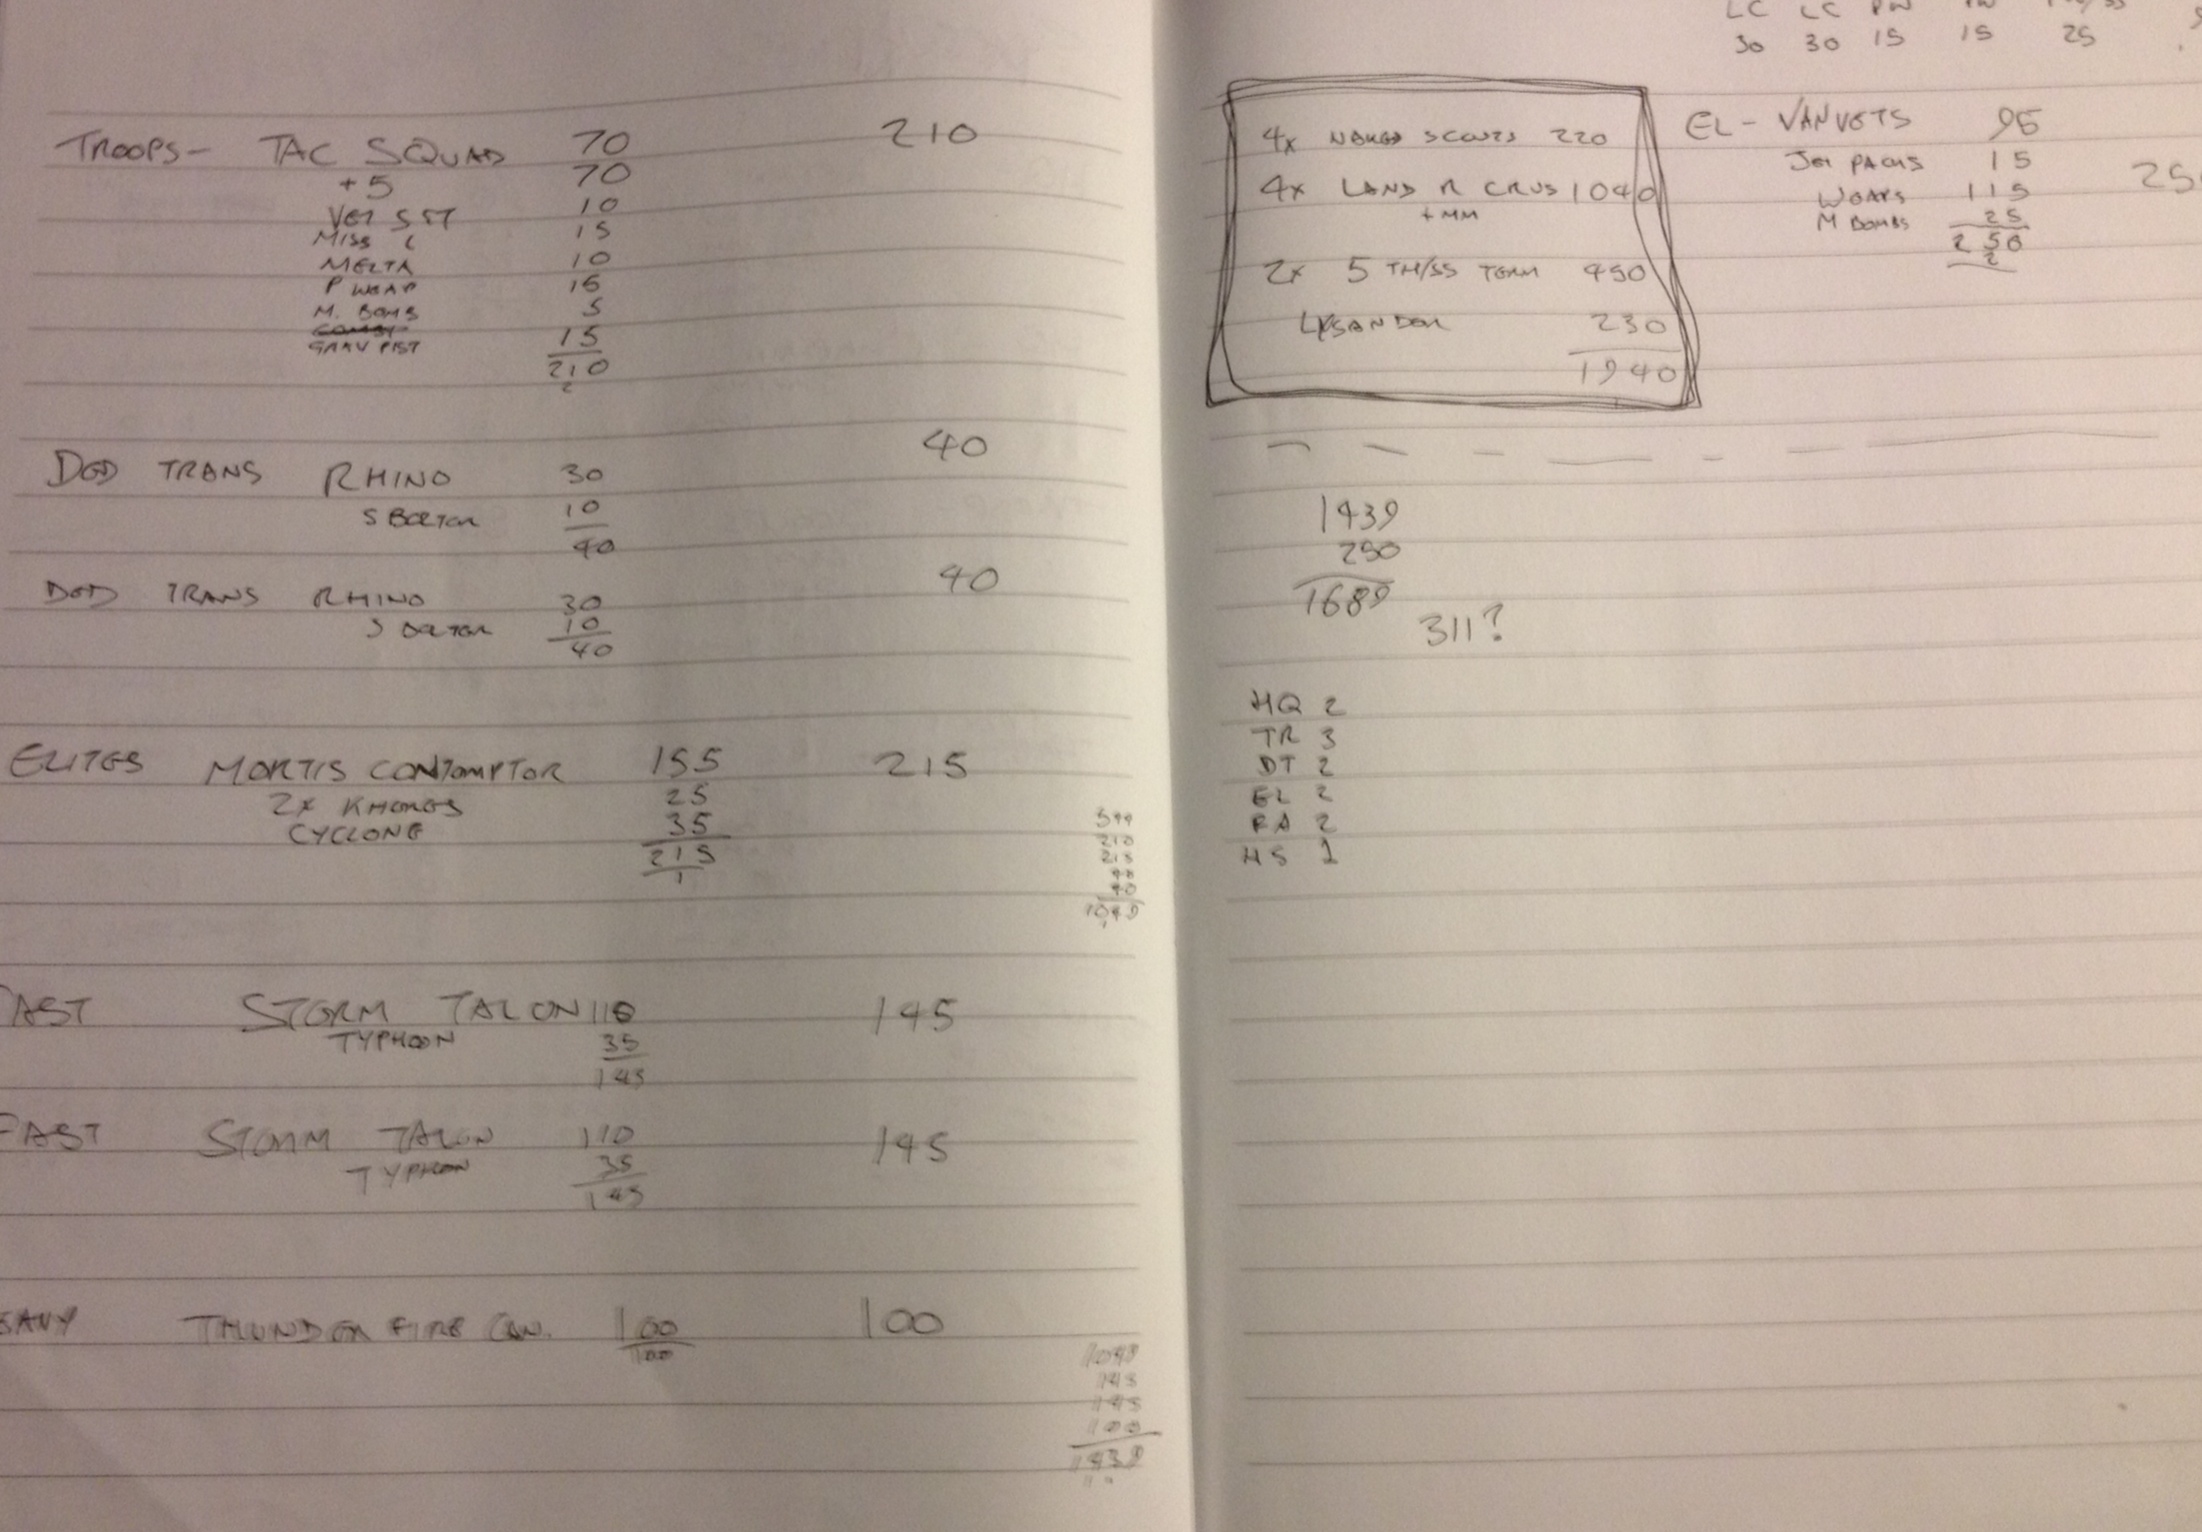 TROOPS- TAC SQUAD 70 210
+5 70
VET SGT 10
MISS L 15
MELTA 10
P WEAP 15
M. BOMB 5
GRAV PIST 15
210
2
DED TRANS RHINO 30 40
S BOLTER 10
40
DED TRANS RHINO 30 40
S BOLTER 10
40
ELITES MORTIS CONTEMPTOR 155 215
2x KHERES 25
CYCLONE 35
215
1
210
215
40
40
1049
FAST STORM TALON 110 145
TYPHOON 35
145
FAST STORM TALON 110 145
TYPHOON 35
145
EAVY THUNDER FIRE CAN. 100 100
100
1049
145
145
100
1439
LC LC PW
30 30 15 15 25
4x NAKED SCOUTS 220
4x LAND R CRUS 1040
+ MM
2x 5 TH/SS TERM 450
LYSANDER 230
1940
EL - VANVETS 95
JET PACKS 15
WEAPS 115
M BOMBS 25
250
2
25
1439
250
1689
311?
HQ 2
TR 3
DT 2
EL 2
FA 2
HS 1